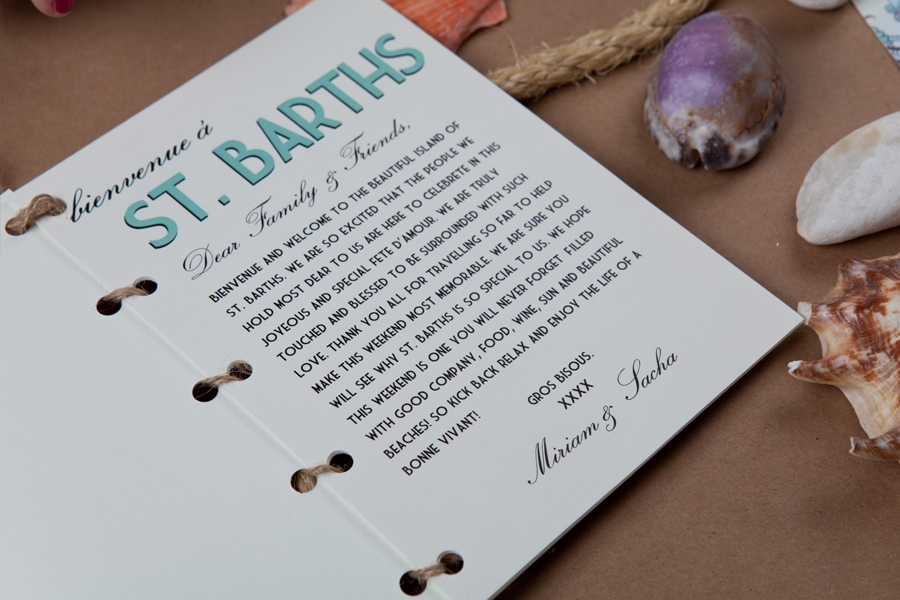 bienvenue à
ST. BARTHS
Dear Family & Friends,
BIENVENUE AND WELCOME TO THE BEAUTIFUL ISLAND OF
ST. BARTHS. WE ARE SO EXCITED THAT THE PEOPLE WE
HOLD MOST DEAR TO US ARE HERE TO CELEBRETE IN THIS
JOYEOUS AND SPECIAL FETE D'AMOUR. WE ARE TRULY
TOUCHED AND BLESSED TO BE SURROUNDED WITH SUCH
LOVE. THANK YOU ALL FOR TRAVELLING SO FAR TO HELP
MAKE THIS WEEKEND MOST MEMORABLE. WE ARE SURE YOU
WILL SEE WHY ST. BARTHS IS SO SPECIAL TO US. WE HOPE
THIS WEEKEND IS ONE YOU WILL NEVER FORGET FILLED
WITH GOOD COMPANY, FOOD, WINE, SUN AND BEAUTIFUL
BEACHES! SO KICK BACK RELAX AND ENJOY THE LIFE OF A
BONNE VIVANT!
GROS BISOUS.
XXXX
Miriam & Sacha